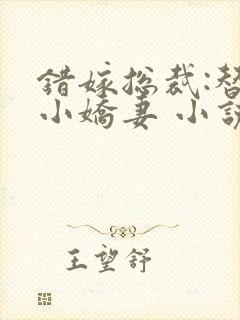 錯嫁总裁:替
小嬌妻 小說
王望舒